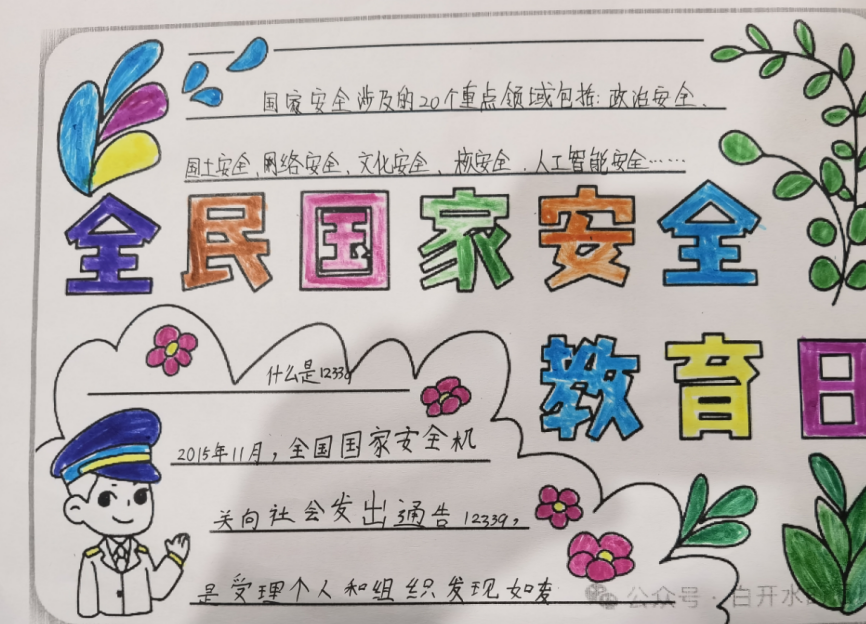 国家安全涉及的20个重点领域包括:政治安全、
国土安全、网络安全、文化安全、核安全、人工智能安全……
全民国家安全
教育日
什么是12339
2015年11月,全国国家安全机
关向社会发出通告12339,
是受理个人和组织发现如变
公众号·白开水